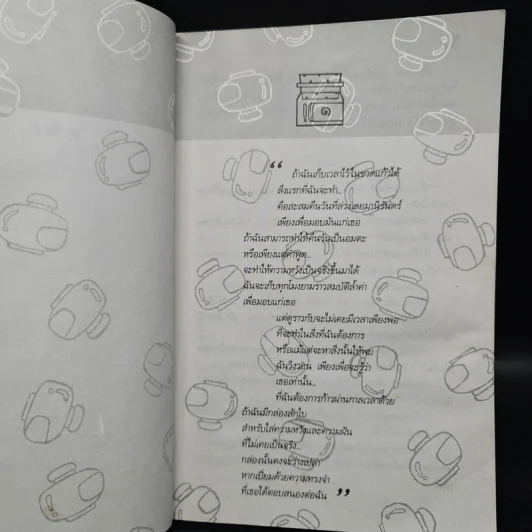 “ ถ้าฉันเก็บเวลาไว้ในขวดแก้วได้
สิ่งแรกที่ฉันจะทำ..
คือสะสมคืนวันที่ล่วงเลยมานิรันดร์
เพียงเพื่อมอบมันแก่เธอ
ถ้าฉันสามารถทำให้คืนวันเป็นอมตะ
หรือเพียงแต่คำพูด..
จะทำให้ความหวังเป็นจริงขึ้นมาได้
ฉันจะเก็บทุกโมงยามราวสมบัติล้ำค่า
เพื่อมอบแก่เธอ
แต่ดูราวกับจะไม่เคยมีเวลาเพียงพอ
ที่จะทำในสิ่งที่ฉันต้องการ
หรือแม้แต่จะหาสิ่งนั้นให้พบ
ฉันวิงวอน เพียงเพื่อจะรู้ว่า
เธอเท่านั้น..
ที่ฉันต้องการก้าวผ่านกาลเวลาด้วย
ถ้าฉันมีกล่องสักใบ
สำหรับใส่ความหวังและความฝัน
ที่ไม่เคยเป็นจริง..
กล่องนั้นคงจะว่างเปล่า
หากเปี่ยมด้วยความทรงจำ
ที่เธอได้ตอบสนองต่อฉัน ”